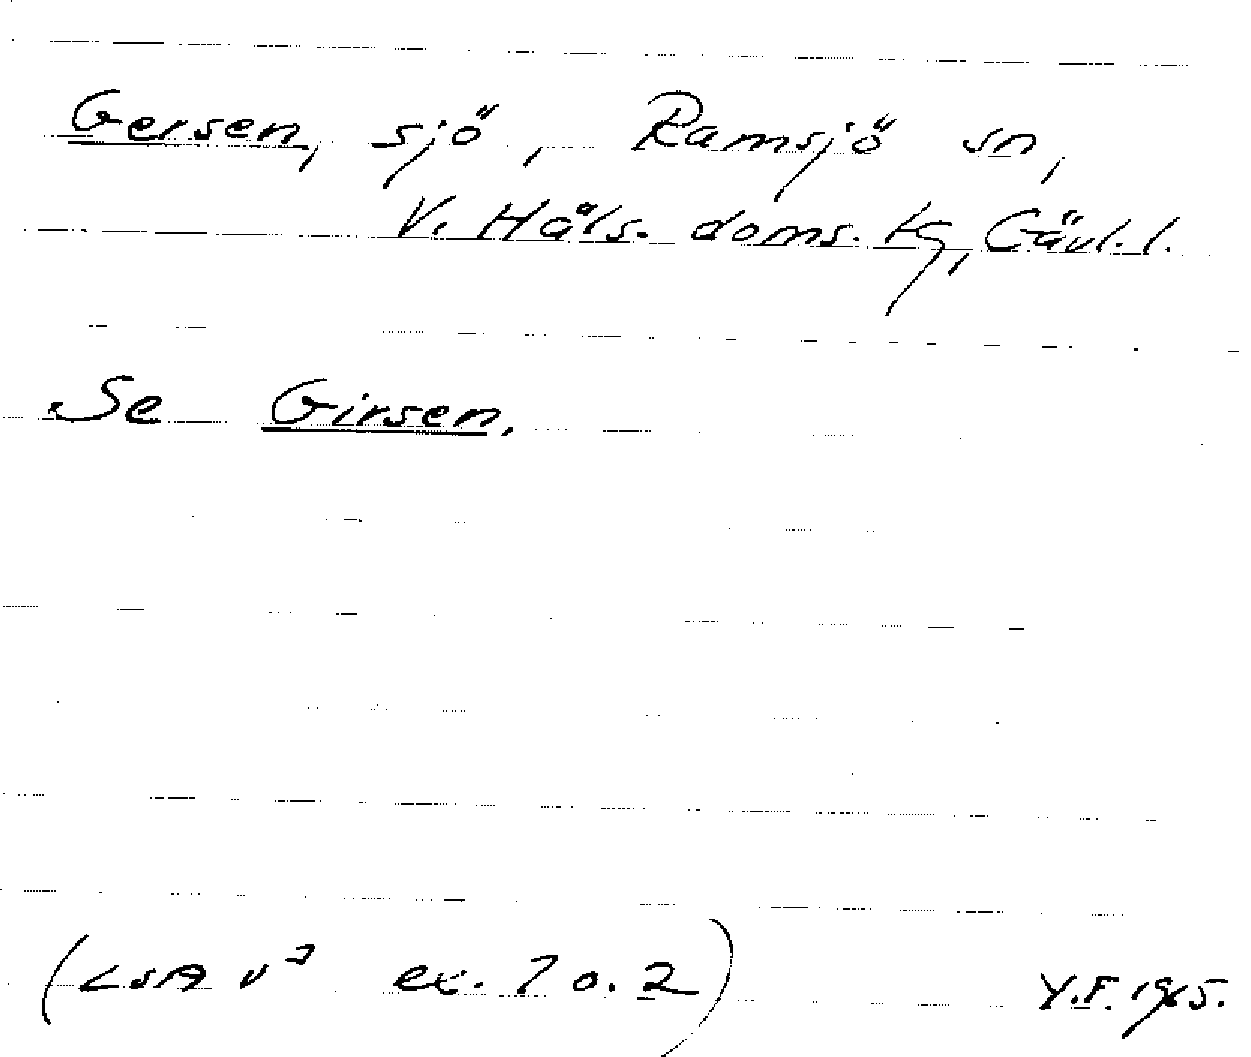 Gersen, sjö, Ramsjö sn,
V. Häls. doms. kg, Gävl. l.
Se Girsen.
(LSA V³ ex. 1 o. 2) Y.F. 1965.